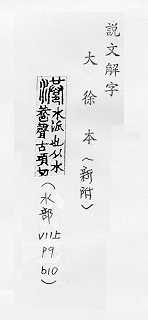 説文解字
大徐本（新附）
港 水派也从水
巷聲古項切
（水部
VII上
P9
b10）